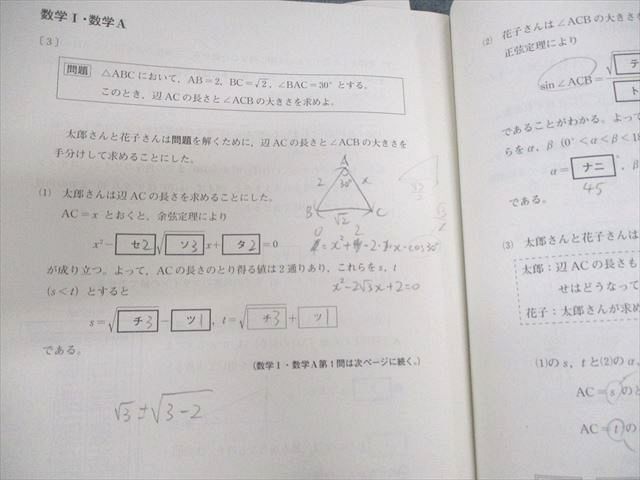 数学Ⅰ・数学A
〔3〕
問題 △ABCにおいて，AB=2，BC=√2，∠BAC=30°とする。
このとき，辺ACの長さと∠ACBの大きさを求めよ。
太郎さんと花子さんは問題を解くために，辺ACの長さと∠ACBの大きさを
手分けして求めることにした。
(1) 太郎さんは辺ACの長さを求めることにした。
AC=xとおくと，余弦定理により
x²-セ2√ソ3x+タ2=0
が成り立つ。よって，ACの長さのとり得る値は2通りあり，これらをs，t
(s<t)とすると
s=√チ3-ツ1，t=√チ3+ツ1
である。
(数学Ⅰ・数学A第1問は次ページに続く。)
A
2
30°
x
B
√2
C
x²-2√3x+2=0
√3±√3-2
(2) 花子さんは∠ACBの大きさ
正弦定理により
sin∠ACB=
テ
ト
であることがわかる。よって
らをα，β(0°<α<β<18
α=ナニ°，β
45
である。
(3) 太郎さんと花子さんは
太郎：辺ACの長さも
せはどうなって
花子：太郎さんが求め
(1)のs，tと(2)のα，
AC=sのと
AC=tの